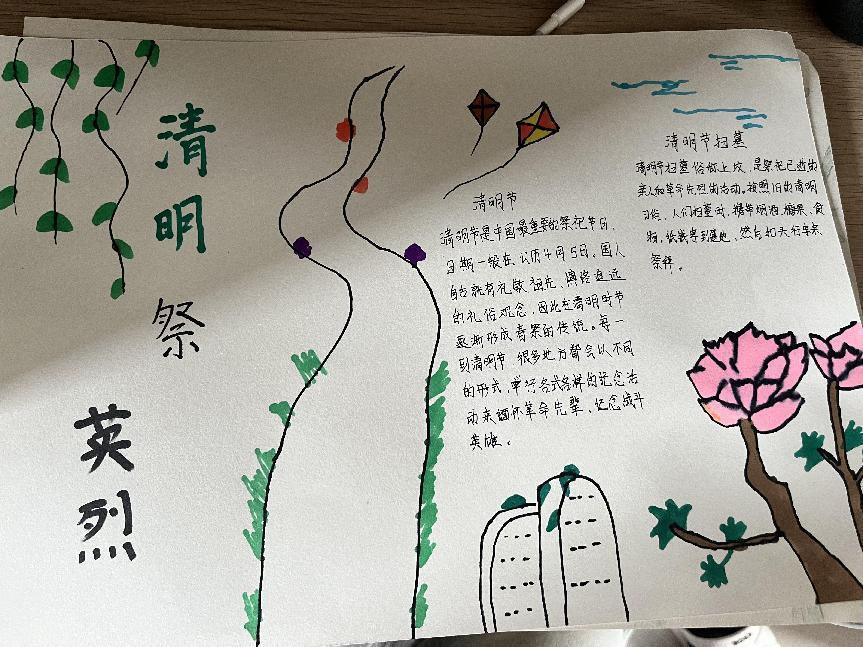 清明祭英烈
清明节
清明节是中国最重要的祭祀节日,
日期一般在公历4月5日。国人
自古就有礼敬祖先、慎终追远
的礼俗观念,因此在清明时节
逐渐形成春祭的传统。每一
到清明节 很多地方都会以不同
的形式,举行各式各样的纪念活
动来缅怀革命先辈、纪念战斗
英雄。
清明节扫墓
清明节扫墓俗称上坟,是祭祀已逝的
亲人和革命先烈的活动。按照旧的清明
习俗,人们扫墓时,携带烟酒,糖果、食
物,纸钱等到墓地,然后
祭拜。